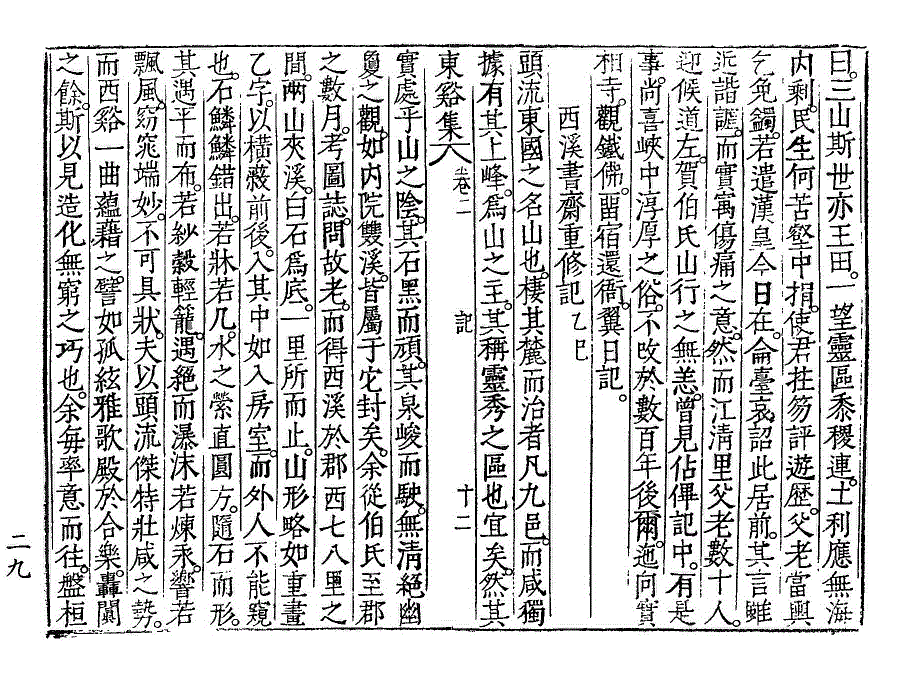 曰。三山斯世亦王田。一望靈區黍稷連。土利應無海
内剩。民生何苦壑中捐。使君拄笏評遊歷。父老當輿
乞免蠲。若遣漢皇今日在。侖臺哀詔此居前。其言雖
近諧謔。而實寓傷痛之意。然而江淸里父老數十人。
迎候道左。賀伯氏山行之無恙。曾見佔俾記中。有是
事。尚喜峽中淳厚之俗。不改於數百年後爾。迤向實
相寺。觀鐵佛。留宿還衙。翼日記。
西溪書齋重修記 乙巳
頭流東國之名山也。棲其麓而治者凡九邑。而咸獨
據有其上峰。爲山之主。其稱靈秀之區也宜矣。然其
東谿集 卷二 記 十二
實處乎山之陰。其石黑而頑。其泉峻而駛。無淸絕幽
敻之觀。如内院雙溪。皆屬于它封矣。余從伯氏至郡
之數月。考圖誌。問故老。而得西溪於郡西七八里之
間。兩山夾溪。白石爲底。一里所而止。山形略如重畫
乙字。以橫蔽前後。入其中如入房室。而外人不能窺
也。石鱗鱗錯出。若牀若几。水之縈直圓方。隨石而形。
其遇平而布。若紗縠輕籠。遇絕而瀑沫若煉汞。響若
飄風。窈窕端妙。不可具狀。夫以頭流傑特壯咸之勢。
而西谿一曲蘊藉之。譬如孤絃雅歌殿於合樂。轟闐
之餘。斯以見造化無窮之巧也。余每率意而往。盤桓
二九